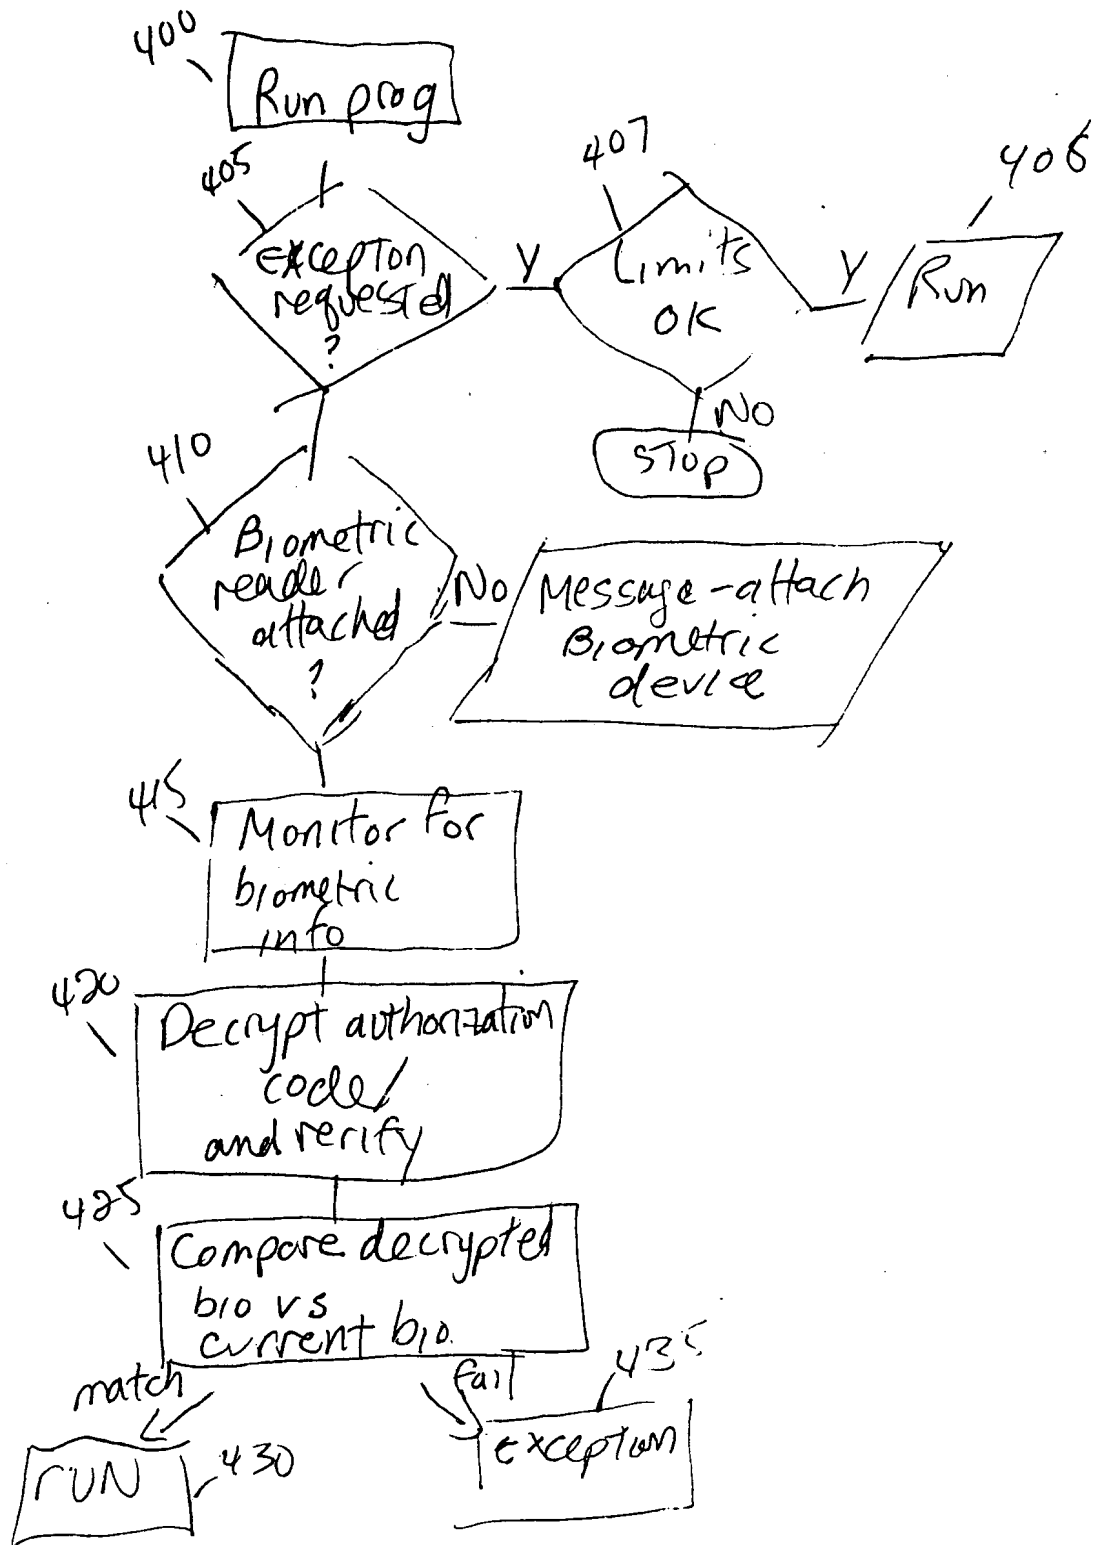 400
Run prog
405
Excepton
requested
?
Y
407
Limits
OK
Y
406
Run
NO
STOP
410
Biometric
reader
attached
?
No
Message-attach
Biometric
device
415
Monitor for
biometric
info
420
Decrypt authorization
code/
and verify
425
Compare decrypted
bio vs
current bio.
match
fail
435
RUN
430
excepton